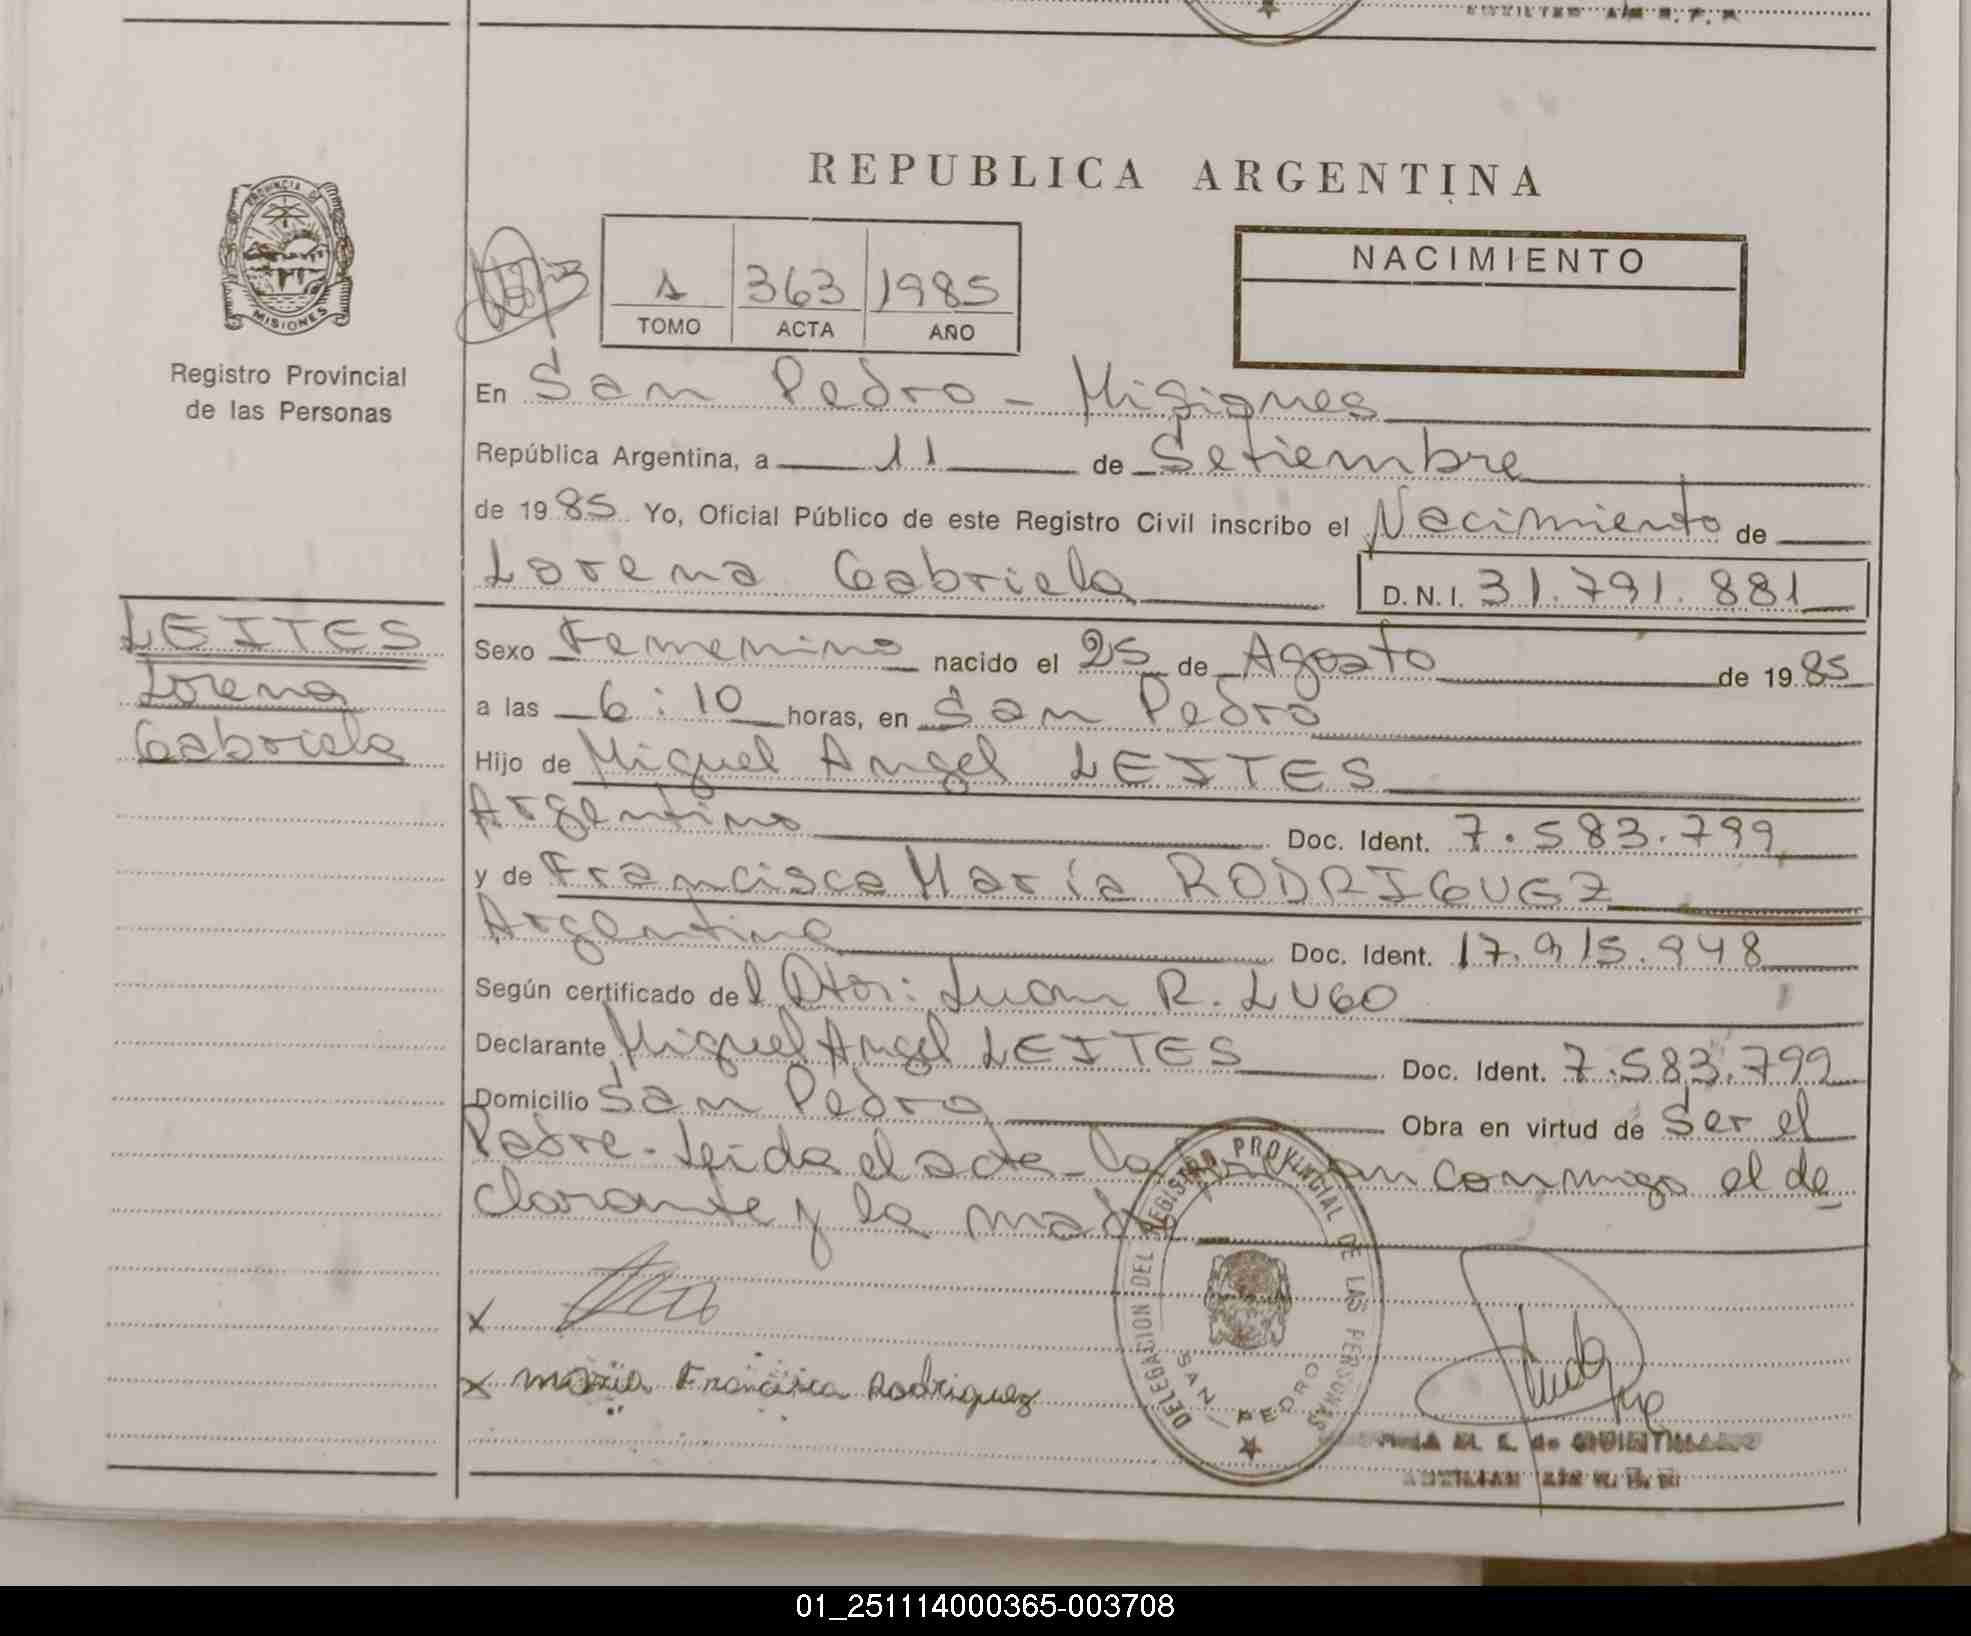 REPUBLICA ARGENTINA
PROVINCIA DE
MISIONES
Registro Provincial
de las Personas
1 363 1985
TOMO ACTA AÑO
NACIMIENTO
En San Pedro - Misiones
República Argentina, a 11 de Setiembre
de 1985 Yo, Oficial Público de este Registro Civil inscribo el Nacimiento de
Lorena Gabriela D.N.I. 31.791.881
LEITES
Lorena
Gabriela
Sexo Femenino nacido el 25 de Agosto de 1985
a las 6:10 horas, en San Pedro
Hijo de Miguel Angel LEITES
Argentino Doc. Ident. 7.583.799
y de Francisca María RODRIGUEZ
Argentina Doc. Ident. 17.915.948
Según certificado del Dtor: Juan R. LUGO
Declarante Miguel Angel LEITES Doc. Ident. 7.583.799
Domicilio San Pedro Obra en virtud de Ser el
Padre - Leida el acta - la conmigo el de
clarante y la madre
x
x Maria Francisca Rodriguez
DELEGACION DEL REGISTRO PROVINCIAL DE LAS PERSONAS
SAN PEDRO
M. L. de QUINTILIANO
AUXILIAR
01_251114000365-003708